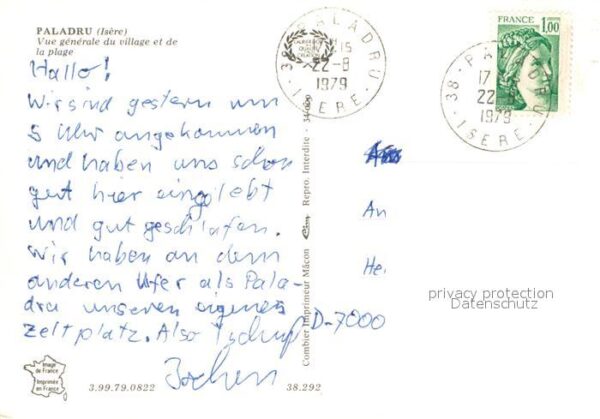 PALADRU (Isère)
Vue générale du village et de
la plage
Hallo!
Wir sind gestern um
5 Uhr angekommen
und haben uns schon
gut hier eingelebt
und gut geschlafen.
Wir haben an dem
anderen Ufer als Pala-
dru unseren eigenen
Zeltplatz. Also Tschüß
Jochen
Image
de France
Imprimée
en France
3.99.79.0822
38.292
Combier Imprimeur Mâcon
Repro. Interdite
38 PALADRU
17 15
22-8
1979
ISERE
FRANCE
1,00
38 - PALADRU
17
22
1979
ISERE
An
He
D-7000
privacy protection
Datenschutz